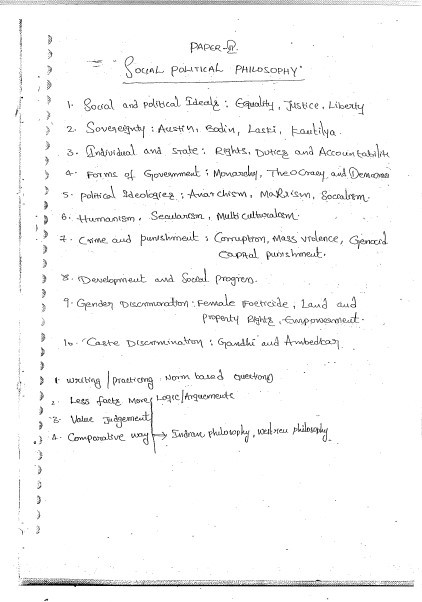 PAPER-II.
= "SOCIAL POLITICAL PHILOSOPHY"
1. Social and political Ideals : Equality, Justice, Liberty
2. Sovereignty : Austin, Bodin, Laski, Kautilya.
3. Individual and state : Rights, Duties and Accountabilit
4. Forms of Government : Monarchy, Theocracy and Democrac
5. political Ideologies : Anarchism, Marxism, Socialism.
6. Humanism, Secularism, Multiculturalism.
7. Crime and punishment : Corruption, Mass violence, Genocid
Capital punishment.
8. Development and Social progress.
9. Gender Discrimination : Female Foeticide, Land and
property Rights, Empowerment.
10. Caste Discrimination : Gandhi and Ambedkar
1. writing/practicing Norm based questions
2. Less facts More Logic/Arguements
3. Value Judgement
4. Comparative way → Indian philosophy, western philosophy